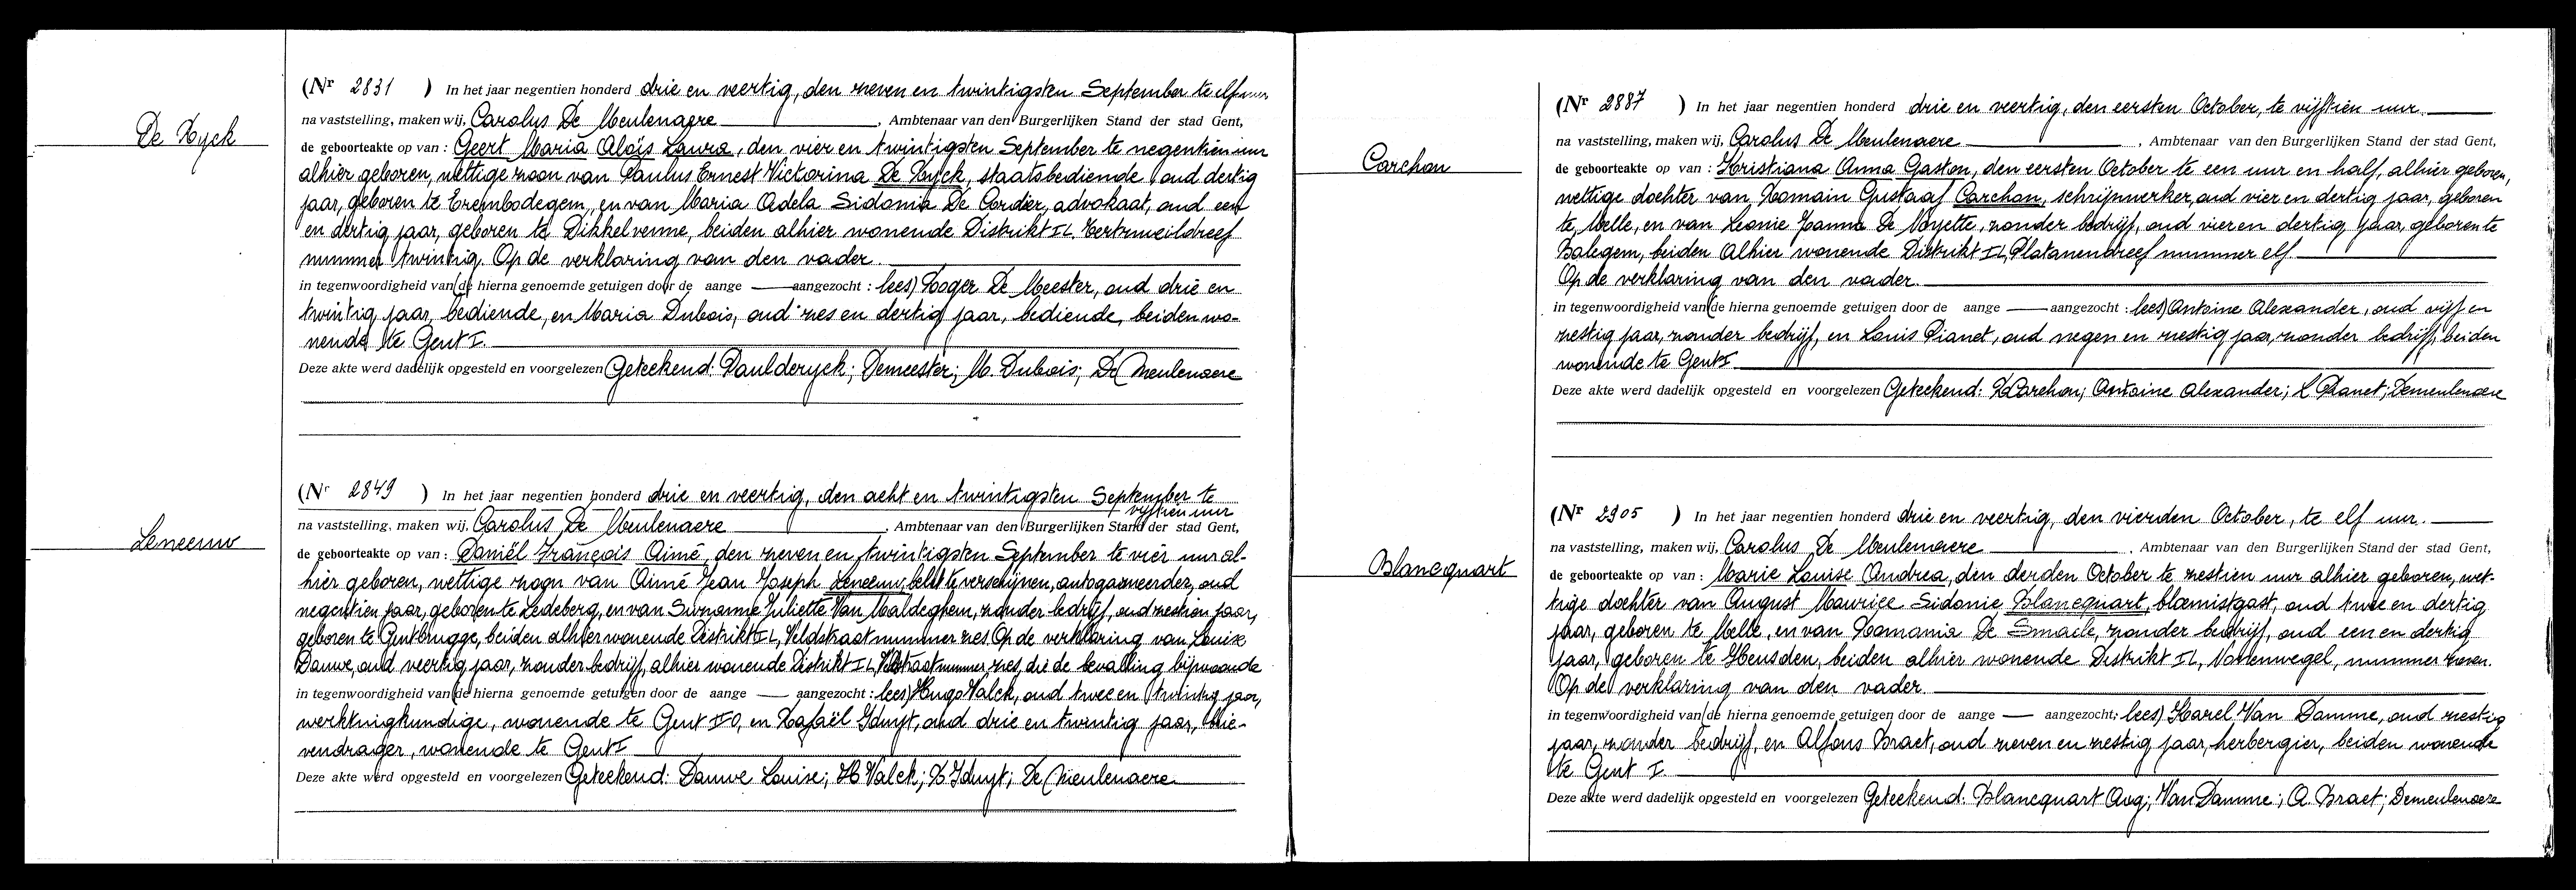 De Ryck
(Nr 2831 ) In het jaar negentien honderd drie en veertig, den zeven en twintigsten September te elf uur
na vaststelling, maken wij, Carolus De Meulenaere , Ambtenaar van den Burgerlijken Stand der stad Gent,
de geboorteakte op van : Geert Maria Aloïs Laura, den vier en twintigsten September te negentien uur
alhier geboren, wettige zoon van Paulus Ernest Victorina De Ryck, staatsbediende, oud dertig
jaar, geboren te Erembodegem, en van Maria Adela Sidonia De Cordier, advokaat, oud een
en dertig jaar, geboren te Dikkelvenne, beiden alhier wonende Distrikt IL.
nummer twintig. Op de verklaring van den vader.
in tegenwoordigheid van (de hierna genoemde getuigen door de aange aangezocht : lees) Roger De Meester, oud drie en
twintig jaar, bediende, en Maria Dubois, oud zes en dertig jaar, bediende, beiden wo-
nende te Gent I.
Deze akte werd dadelijk opgesteld en voorgelezen Geteekend: Paul deryck; Demeester; M. Dubois; De Meulenaere
Leneeuw
(Nr 2849 ) In het jaar negentien honderd drie en veertig, den acht en twintigsten September te
vijftien uur
na vaststelling, maken wij, Carolus De Meulenaere , Ambtenaar van den Burgerlijken Stand der stad Gent,
de geboorteakte op van : Daniël François Aimé, den zeven en twintigsten September te vier uur al-
hier geboren, wettige zoon van Aimé Jean Joseph Leneeuw, belet te verschijnen, autogasmeerder, oud
negentien jaar, geboren te Ledeberg, en van Suzanne Juliette Van Maldeghem, zonder bedrijf, oud zestien jaar,
geboren te Gentbrugge, beiden alhier wonende Distrikt IL, Veldstraat nummer zes. Op de verklaring van Louise
Dauwe, oud veertig jaar, zonder bedrijf, alhier wonende Distrikt IL, Veldstraat nummer zes, die de bevalling bijwoonde
in tegenwoordigheid van (de hierna genoemde getuigen door de aange aangezocht : lees) Hugo Valck, oud twee en twintig jaar,
werktuigkundige, wonende te Gent IIO, en Rafaël Yduyt, oud drie en twintig jaar, brie-
vendrager, wonende te Gent I
Deze akte werd opgesteld en voorgelezen Geteekend: Dauwe Louise; H Valck; R Yduyt; De Meulenaere
Carchon
(Nr 2887 ) In het jaar negentien honderd drie en veertig, den eersten October, te vijftien uur.
na vaststelling, maken wij, Carolus De Meulenaere , Ambtenaar van den Burgerlijken Stand der stad Gent,
de geboorteakte op van : Kristiana Anna Gaston, den eersten October te een uur en half, alhier geboren,
wettige dochter van Romain Gustaaf Carchon, schrijnwerker, oud vier en dertig jaar, geboren
te Melle, en van Leonie Joanna De Noyette, zonder bedrijf, oud vier en dertig jaar, geboren te
Balegem, beiden Alhier wonende Distrikt IL, Platanendreef nummer elf.
Op de verklaring van den vader.
in tegenwoordigheid van (de hierna genoemde getuigen door de aange aangezocht : lees) Antoine Alexander, oud vijf en
zestig jaar, zonder bedrijf, en Louis Pianet, oud negen en zestig jaar, zonder bedrijf, beiden
wonende te Gent I
Deze akte werd dadelijk opgesteld en voorgelezen Geteekend: R Carchon; Antoine Alexander; L Pianet; Demeulenaere
Blancquart
(Nr 2905 ) In het jaar negentien honderd drie en veertig, den vierden October, te elf uur.
na vaststelling, maken wij, Carolus De Meulenaere , Ambtenaar van den Burgerlijken Stand der stad Gent,
de geboorteakte op van : Marie Louise Andrea, den derden October te zestien uur alhier geboren, wet-
tige dochter van August Maurice Sidonie Blancquart, bloemistgast, oud twee en dertig
jaar, geboren te Melle, en van Romania De Smaele, zonder bedrijf, oud een en dertig
jaar, geboren te Heusden, beiden alhier wonende Distrikt IL, Notenwegel, nummer zeven.
Op de verklaring van den vader.
in tegenwoordigheid van (de hierna genoemde getuigen door de aange aangezocht: lees) Karel Van Damme, oud zestig
jaar, zonder bedrijf, en Alfons Braet, oud zeven en zestig jaar, herbergier, beiden wonende
te Gent I.
Deze akte werd dadelijk opgesteld en voorgelezen Geteekend: Blancquart Aug; Van Damme; A. Braet; Demeulenaere